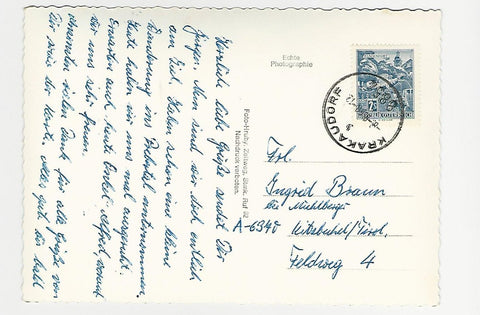 Herzlich liebe Grüße sendet Dir
Inge. Nun sind wir doch endlich
am Ziel. Haben schon eine kleine
Wanderung ins Bachtal unternommen.
Heute haben wir uns mal ausgeruht.
Erwarten auch heute Onkel Alfred, worauf
wir uns sehr freuen.
vielen Dank für alle Grüße von
Dir sowie der Karte. Alles Gute bis bald
Echte
Photographie
Foto-Hruby, Zeltweg, Stmk. Ruf 82
Nachdruck verboten.
KRAKAUDORF
Frl.
Ingrid Braun
bei Mühlberger
A-6370 Kitzbühel/Tirol.
Feldweg 4